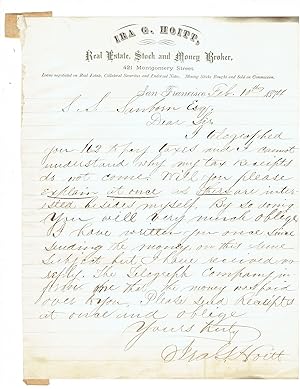 IRA G. HOITT,
Real Estate, Stock and Money Broker,
421 Montgomery Street
Loans negotiated on Real Estate, Collateral Securities and Endorsed Notes. Mining Stocks Bought and Sold on Commission.
San Francisco, Feb. 10th 1874
S. S. Sanborn Esq.
Dear Sir
I telegraphed
you 112 to pay taxes and I cannot
understand why my tax receipts
do not come. Will you please
explain at once as there are inter
ested besides myself. By so doing
You will very much oblige
I have written you once since
sending the money, on this same
subject but I have received no
reply. The Telegraph Company in
form me that the money was paid
over to you. Please send receipts
at once and oblige
Yours truly
Ira G Hoitt